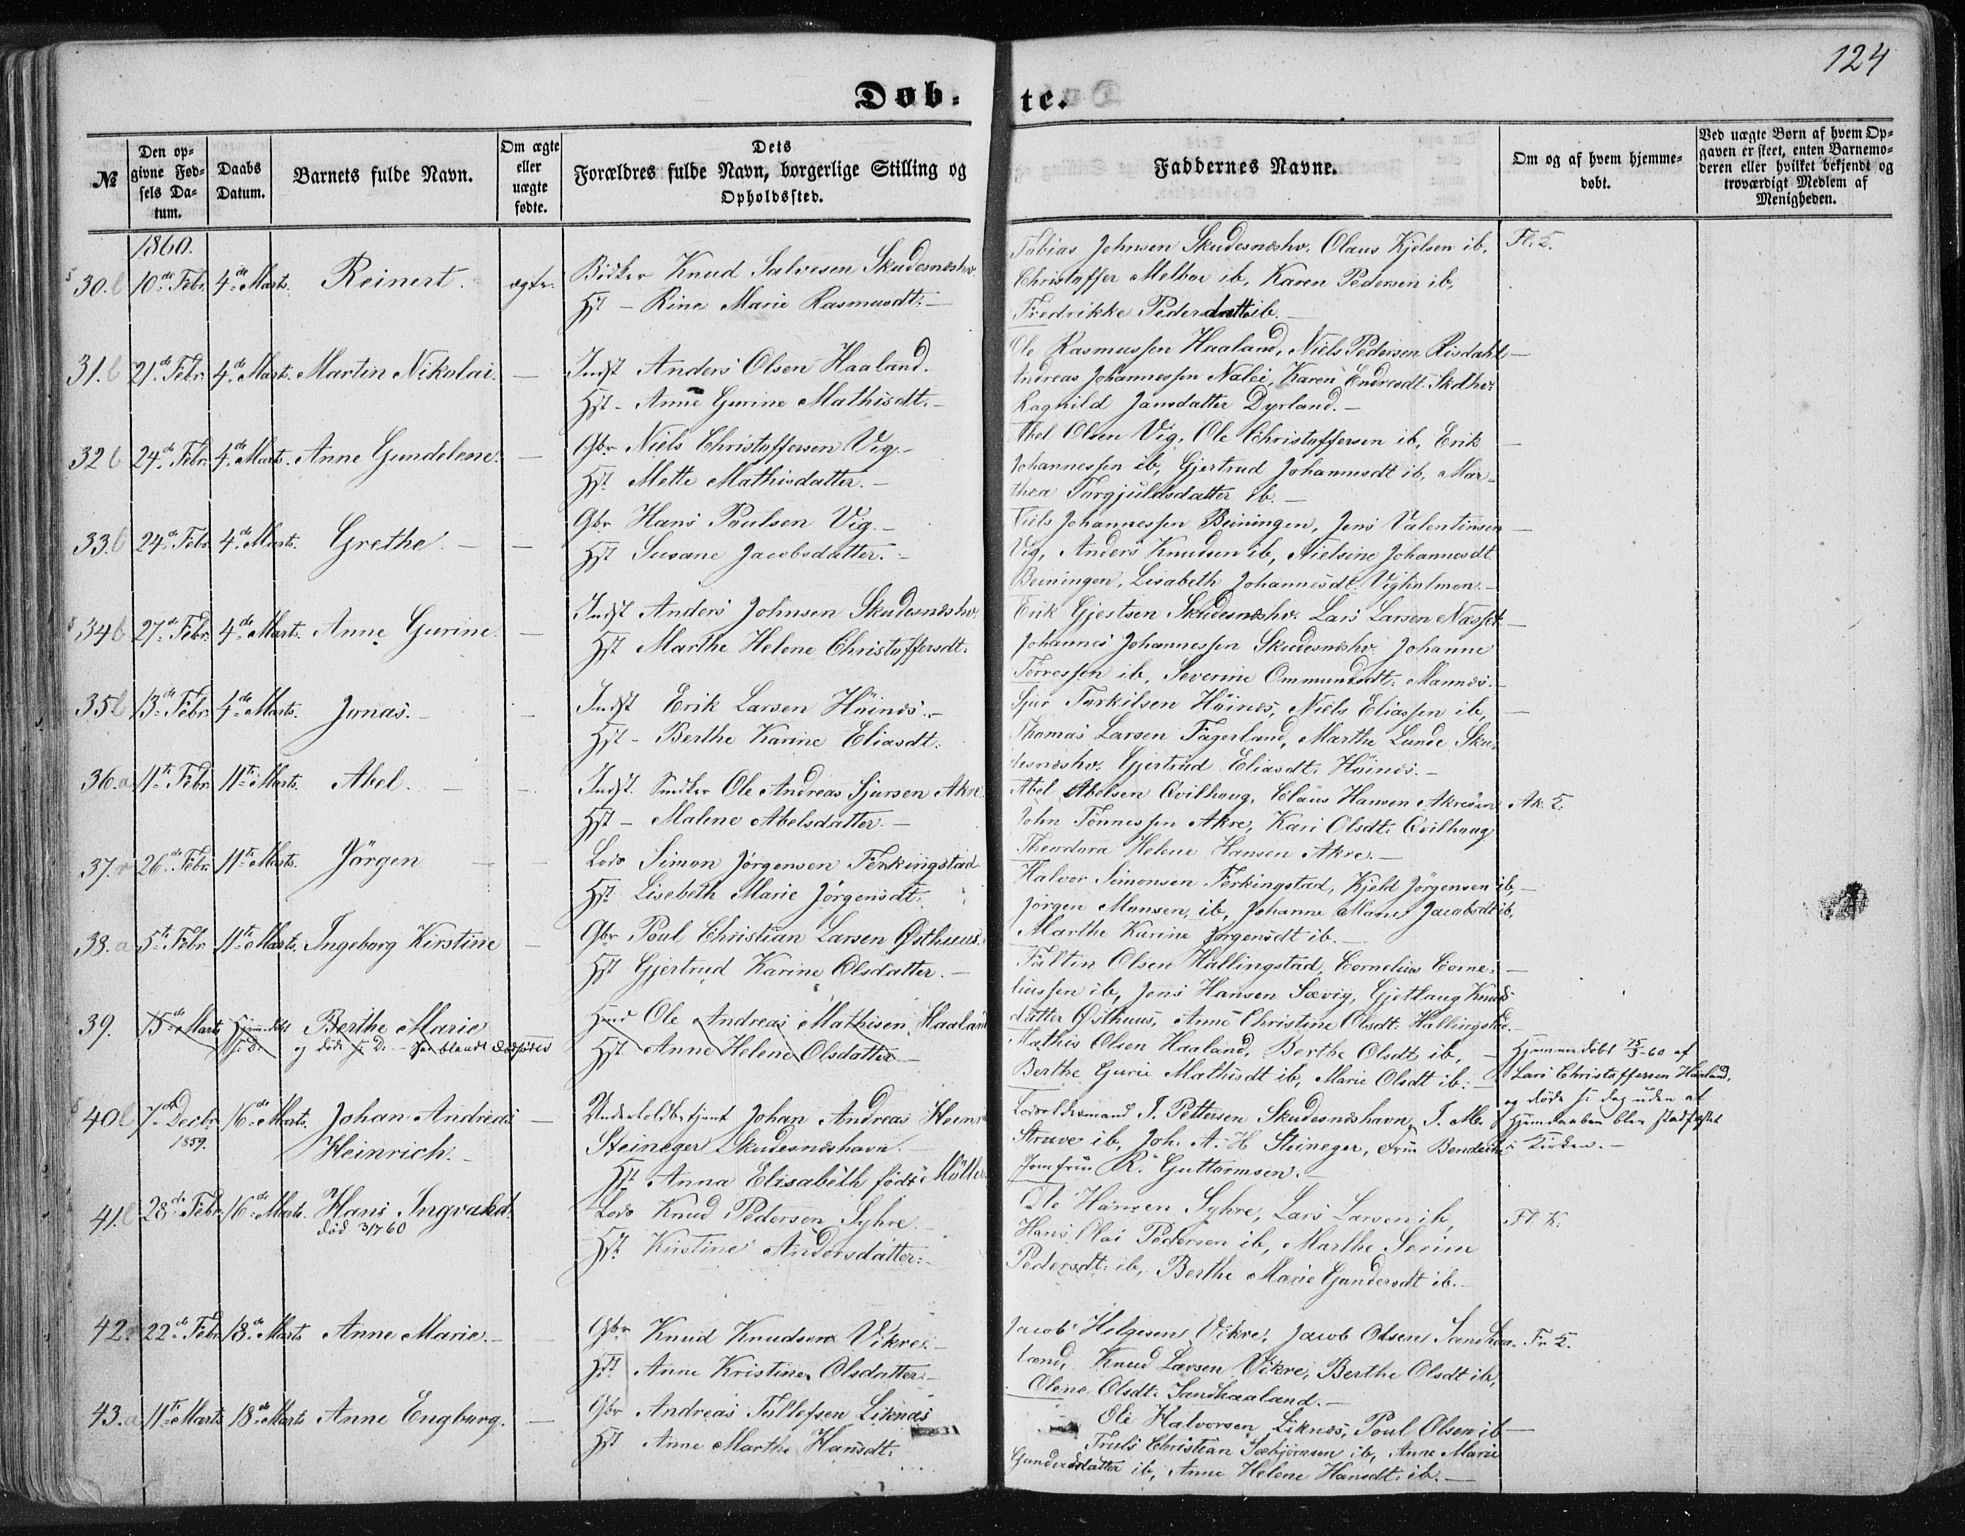 124
Døb- te.
№
Den opgivne Fødsels Datum.
Daabs Datum.
Barnets fulde Navn.
Om ægte eller uægte fødte.
Dets Forældres fulde Navn, borgerlige Stilling og Opholdssted.
Faddernes Navne.
Om og af hvem hjemmedøbt.
Ved uægte Børn af hvem Opgaven er skeet, enten Barnemoderen eller hvilket bekjendt og troværdigt Medlem af Menigheden.
1860.
30.b 10de Febr. 4de Marts. Reinert. ægte.
Knud Salvesen Skudesnæshv
Hst - Rine Marie Rasmusdt. -
Tobias Johnsen Skudesnæshv. Olaus Kjelsen ib,
Christoffer Melboe ib, Karen Pedersen ib,
Fredrikke Pedersdatt ib. -
31.b 21de Febr. 4de Marts. Martin Nikolai. -
Indst Anders Olsen Haaland.
Hst - Anne Gurine Mathisdt. -
Ole Rasmussen Haaland, Niels Pedersen Risdahl -
Andreas Johannessen Nalei, Karen Endresdt. Skdhv.
Ragnild Jansdatter Dyrland. -
32 b 24de Febr. 4de Marts. Anne Gundelene. -
Gbr Niels Christoffersen Vig. -
Hst. Mette Mathisdatter. -
Abel Olsen Vig, Ole Christoffersen ib, Erik -
Johannessen ib, Gjertrud Johannesdt ib, Mar-
thea Torgjulsdatter ib. -
33.b 24de Febr. 4de Marts. Grethe. - -
Gbr Hans Poulsen Vig. -
Hst Susane Jacobsdatter. -
Niels Johannessen Beiningen, Jens Valentinsen -
Vig, Anders Knudsen ib, Nielsine Johannesdt
Beiningen, Lisabeth Johannesdt. Vigholmen. -
34b 27de Febr. 4de Marts. Anne Gurine. -
Indst Anders Johnsen Skudesnæshv.
Hst Marthe Helene Christoffersdt.
Erik Gjestsen Skudesnæshv. Lars Larsen Næsset -
Johannes Johannessen Skudesnæshv. Johanne
Tørressen ib, Severine Ommundsdt. Mannes. -
35b 13de Febr. 4de Marts. Jonas. - -
Indst Erik Larsen Höines. -
Hst - Berthe Karine Eliasdt.
Sjur Torkilsen Höines, Niels Eliassen ib, -
Thomas Larsen Fagerland, Marthe Lunde Sku-
desnæshv. Gjertrud Eliasdt. Höines. -
36.a 11te Febr. 11te Marts. Abel. - -
Indst. Ole Andreas Sjursen Akre.
Hst - Malene Abelsdatter. -
Abel Abelsen Qvilhaug, Claus Hansen Akreöen Ak. T.
John Tönnessen Akre, Kari Olsdt. Qvilhaug
Theodora Helene Hansen Akre. -
37. 26de Febr. 11te Marts. Jörgen - -
Lods Simon Jörgensen Ferkingstad
Hst. Lisebeth Marie Jörgensdt.
Halvor Simonsen Ferkingstad, Kjeld Jörgensen ib, -
Jörgen Monsen, ib, Johanne Marie Jacobsdt ib,
Marthe Karine Jörgensdt ib. -
38.a 5te Febr 11te Marts. Ingeborg Kirstine -
Gbr Poul Christian Larsen Østhuus.
Hst Gjertrud Karine Olsdatter. -
Faltin Olsen Hallingstad, Cornelius Corne- -
liussen ib, Jens Hansen Sævig, Gjetlaug Knuds
datter Østhuus, Anne Christine Olsdt. Hallingstad. -
39. 15de Marts Hjemdøbt s. D. Berthe Marie
og døde s. D. - Dødfödte
Ole Andreas Mathisen, Haaland
Hst Anne Helene Olsdatter -
Mathis Olsen Haaland, Berthe Olsdt ib, -
Berthe Gurie Mathisdt ib, Marie Olsdt ib. -
Hjemmedöbt 15/3-60 af
Lars Christoffersen Haaland,
og døde s. Dag uden at
Hjemdaaben blev stadfæstet
i Kirken. -
40b 7de Decbr 1859. 16de Marts. Johan Andreas Heinrich. - -
Undertoldbetjent Johan Andreas Heinr
Steineger Skudesnæshavn. -
Hst Anna Elisabeth fødte Möller
J. Pettersen Skudesnæshavn, J. M.
Struve ib, Joh. A. H. Steineger, Fru
Jomfru R. Guttormsen. -
41.b 28de Febr. 16de Marts. Hans Ingvald.
død 3/7 60
Lods Knud Pedersen Syhre. -
Hst. Kirstine Andersdatter. -
Ole Hansen Syhre, Lars Larsen ib,
Hans Olai Pedersen ib, Marthe Serine
Pedersdt. ib, Berthe Marie Gundersdt ib. -
Fl. K.
42. 22de Febr 18de Marts Anne Marie. - -
Gbr Knud Knudsen Vikre. -
Hst Anne Kristine Olsdatter. -
Jacob Helgesen Vikre, Jacob Olsen Sandhaa- Fr. T.
land, Knud Larsen Vikre, Berthe Olsdt ib,
Olene Olsdt. Sandhaaland. -
43.a 11te Marts 18de Marts Anne Engborg. -
Gbr Andreas Tollefsen Liknæs
Hst Anne Marthe Hansdt.
Ole Halvorsen Liknæs, Poul Olsen ib -
Truls Christian Sæbjørnsen ib, Anne Marie
Gundersdatter ib, Anne Helene Hansdt. ib. -